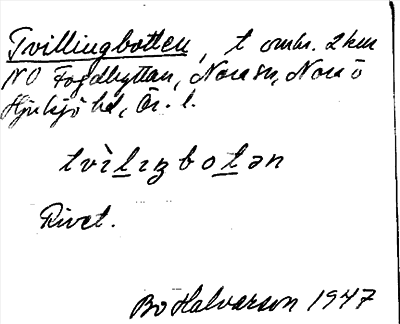 Tvillingbotten, t omkr. 2 km
NO Fogdhyttan, Nora sn, Nora o
Hjulsjö hd, Ör. l.
tvìlıŋbotən
Rivet.
Bo Halvarson 1947